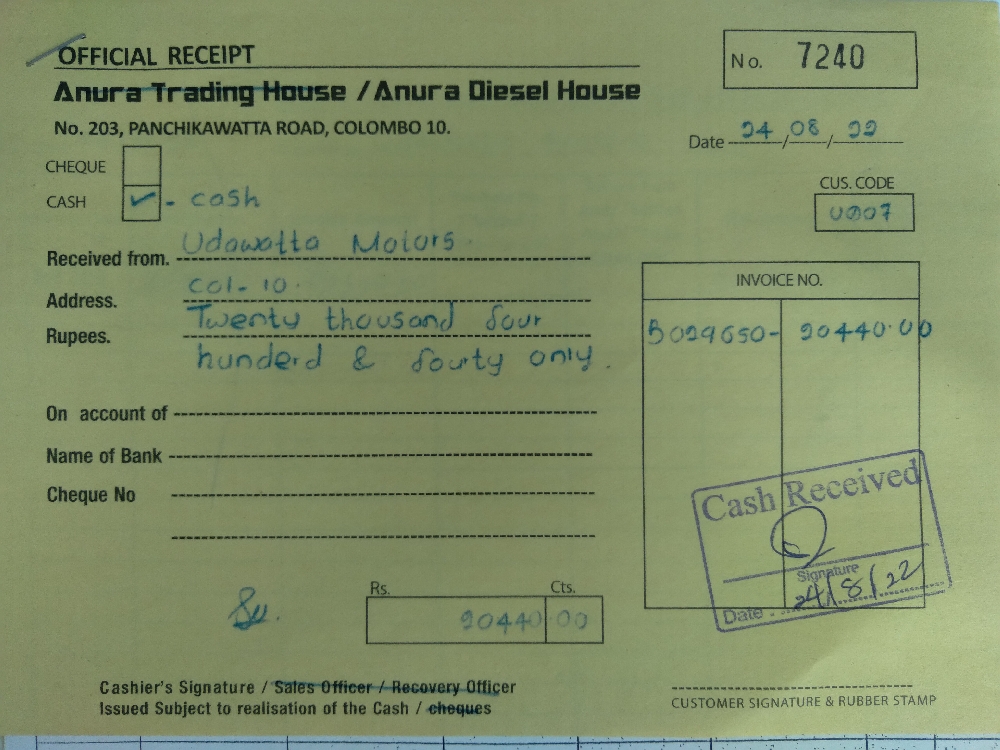 OFFICIAL RECEIPT
No. 7240
Anura Trading House / Anura Diesel House
No. 203, PANCHIKAWATTA ROAD, COLOMBO 10.
Date 24/08/22
CHEQUE
CASH ✓ - cash
CUS. CODE
U007
Received from. Udawatta Motors.
Address. Col-10.
Rupees. Twenty thousand four
hunderd & fourty only.
INVOICE NO.
B029650- 20440.00
On account of
Name of Bank
Cheque No
Cash Received
Signature
Date 24/8/22
Rs. Cts.
20440 00
Cashier's Signature / Sales Officer / Recovery Officer
Issued Subject to realisation of the Cash / cheques
CUSTOMER SIGNATURE & RUBBER STAMP